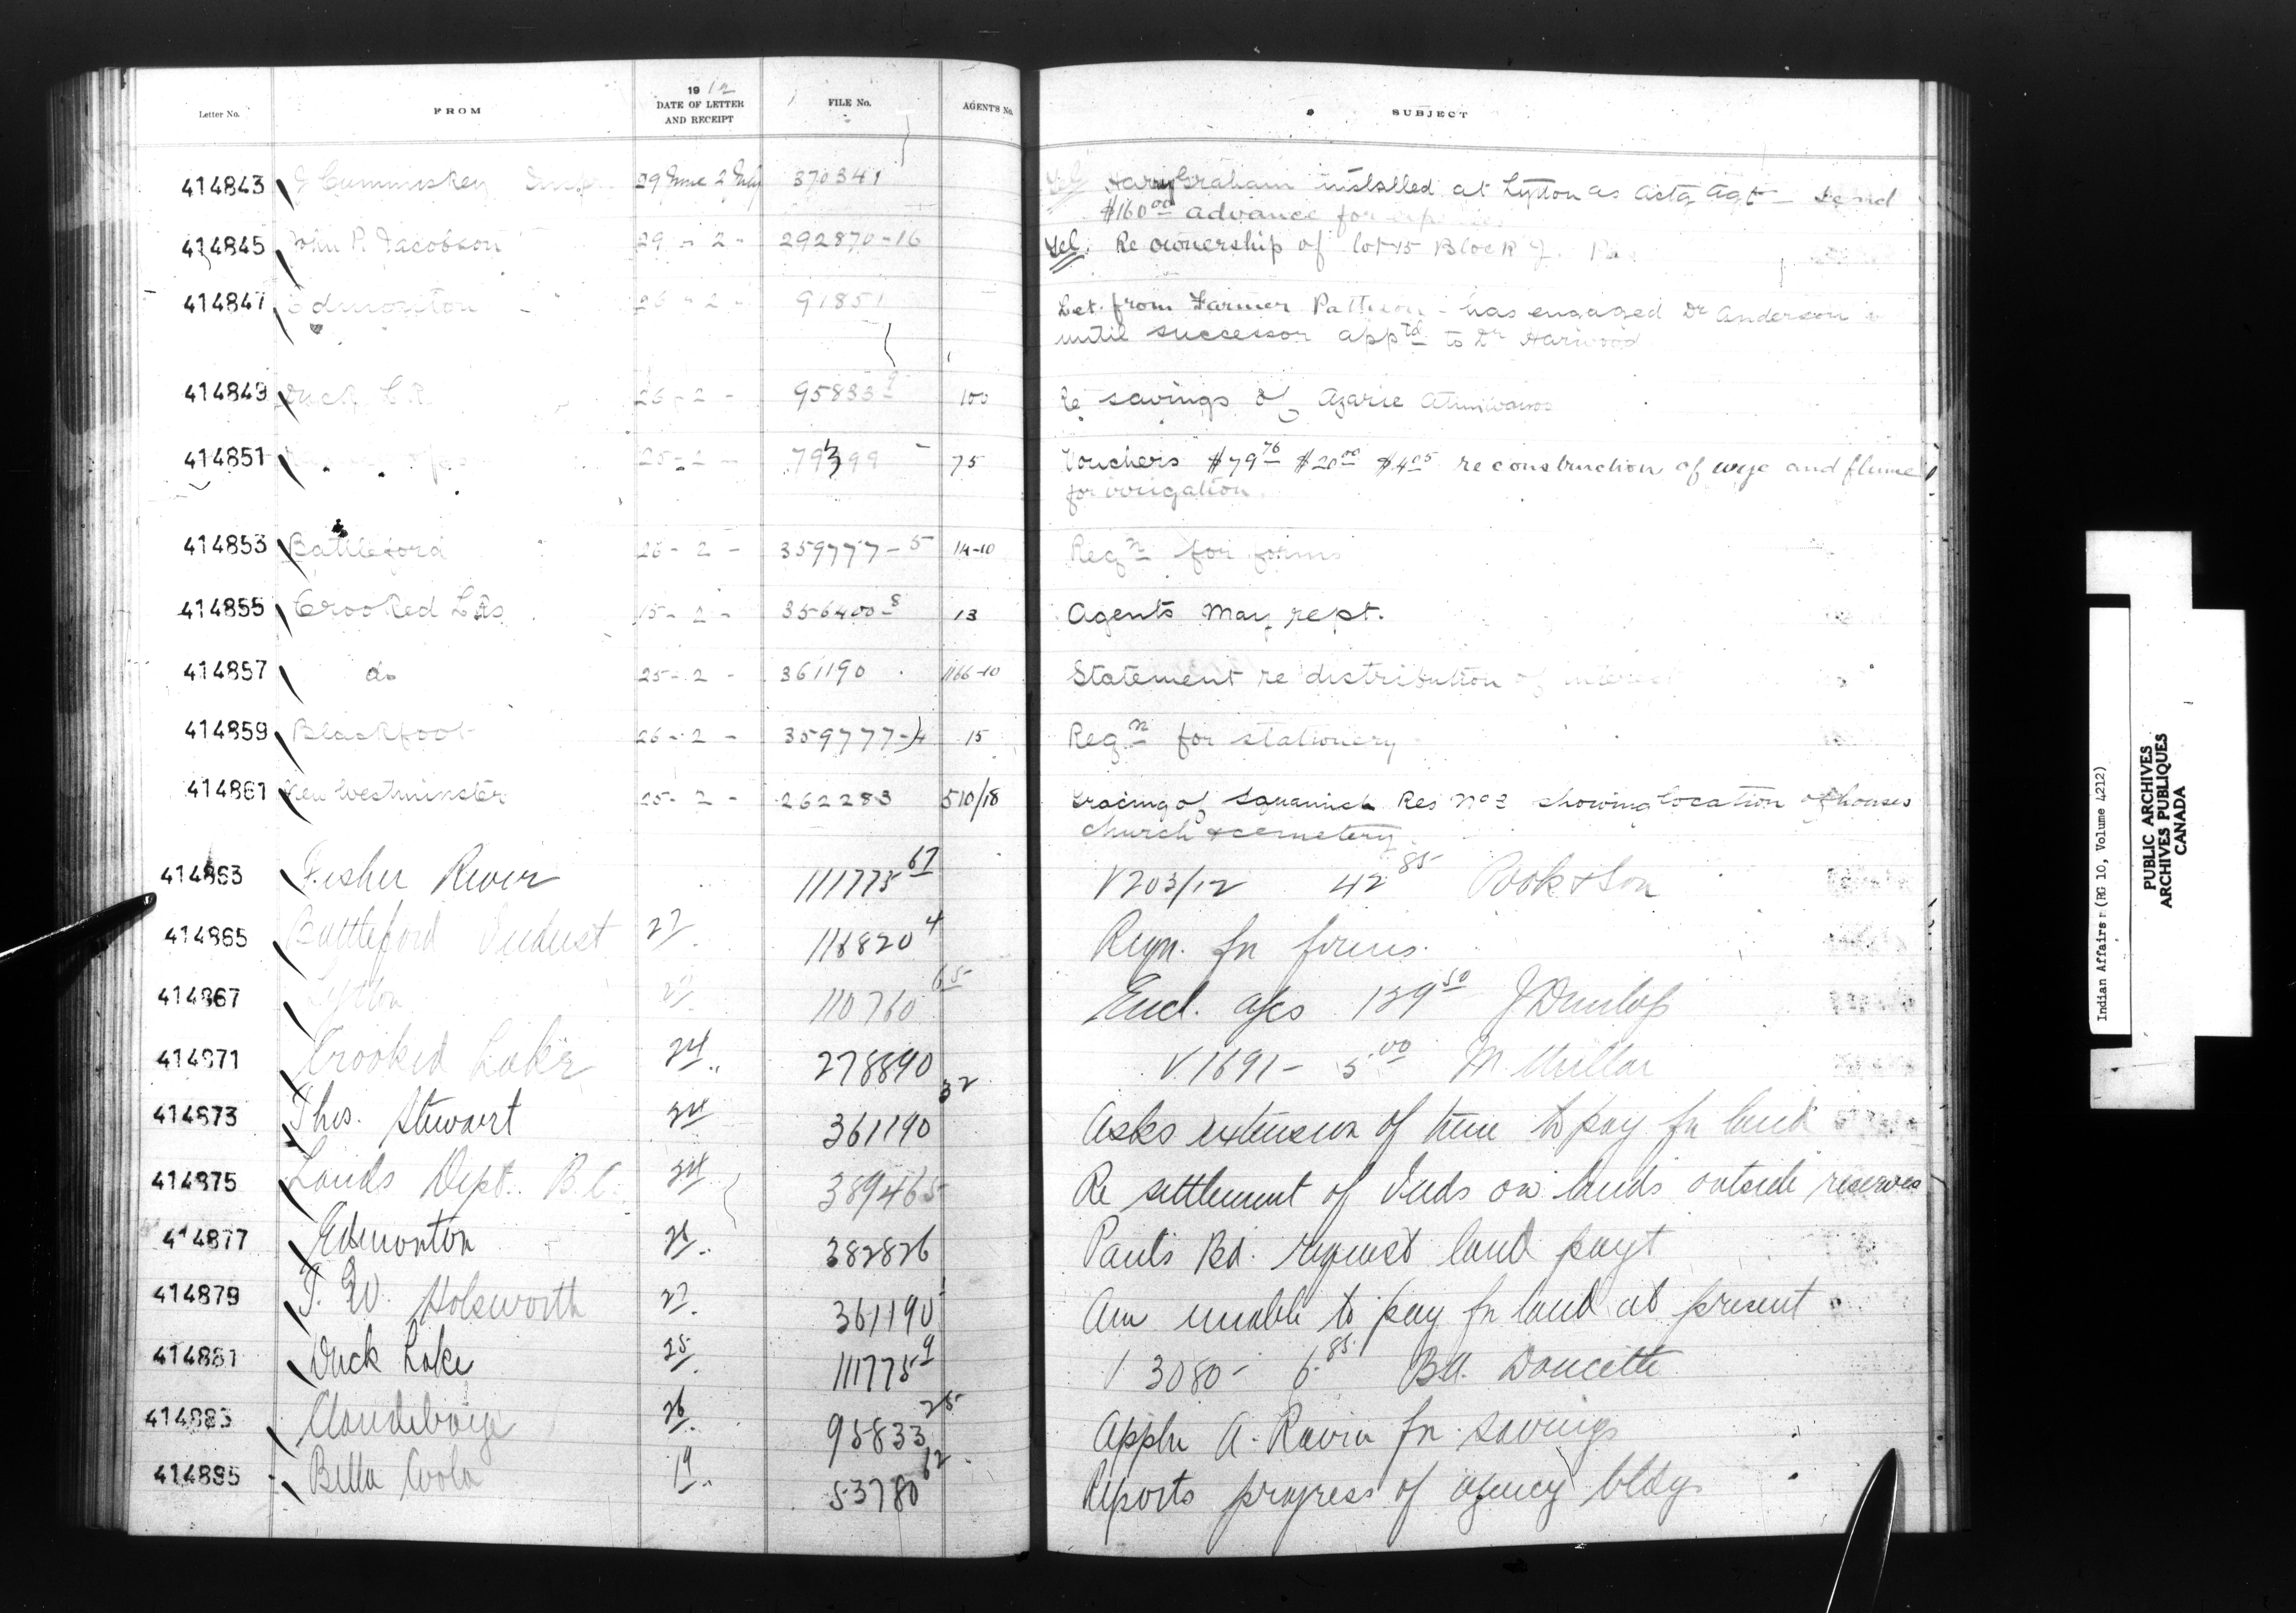 Letter No. FROM 1912 DATE OF LETTER AND RECEIPT FILE No. AGENT'S No. SUBJECT
414843 J Cummiskey Insp. 29 June 2 July 370341 Tel Harry Graham installed at Lytton as actg agt - Send
$160 00 advance for
414845 John P. Jacobson 29 - 2 - 292870-16 Tel. Re ownership of lot 15 Block J.
414847 Edmonton 26 - 2 - 91851 Let. from Farmer Pattison - has engaged Dr Anderson
until successor apptd to Dr Harwood
414849 Duck L.R. 26 - 2 - 95833 9 100 Re savings of Azarie
414851 25 - 2 - 75 Vouchers $79 76 $20 00 $4 05 re construction of wye and flume
for irrigation
414853 Battleford 26 - 2 - 359777-5 114-10 Reqn for forms
414855 Crooked Lks 15 - 2 - 356400-8 13 Agents May rept.
414857 do 25 - 2 - 361190 1166-10 Statement re distribution of interest
414859 Blackfoot 26 - 2 - 359777-14 15 Reqn for stationery
414861 New Westminster 25 - 2 - 262283 510/18 Tracing of Squamish Res No 3 showing location of houses
church & cemetery
414863 Fisher River 111775 67 V203/12 42 85 Pook & Son
414865 Battleford Indust 27 116820 4 Reqn. fr forms.
414867 Lytton 27 110760 65 Encl. a/cs 139 50 J Dunlop
414871 Crooked Lakes 24 " 278890 V.1691 - 5 00 M. Millar
414873 Thos. Stewart 24 361190 32 Asks extension of time to pay fr land
414875 Lands Dept. B.C. 24 389465 Re settlement of Inds on lands outside reserves
414877 Edmonton 26 382826 Pauls Bd. request land payt
414879 T. W. Holsworth 27 361190 Am unable to pay fr land at present
414881 Duck Lake 25 111775 9 V 3080 - 6 85 Bd. Doucette
414883 Clandeboye 26 95833 25 Appln A. Ravin fr. savings
414885 Bella Coola 19 53780 62 Reports progress of agency bldgs
Indian Affairs (RG 10, Volume 4212)
PUBLIC ARCHIVES
ARCHIVES PUBLIQUES
CANADA